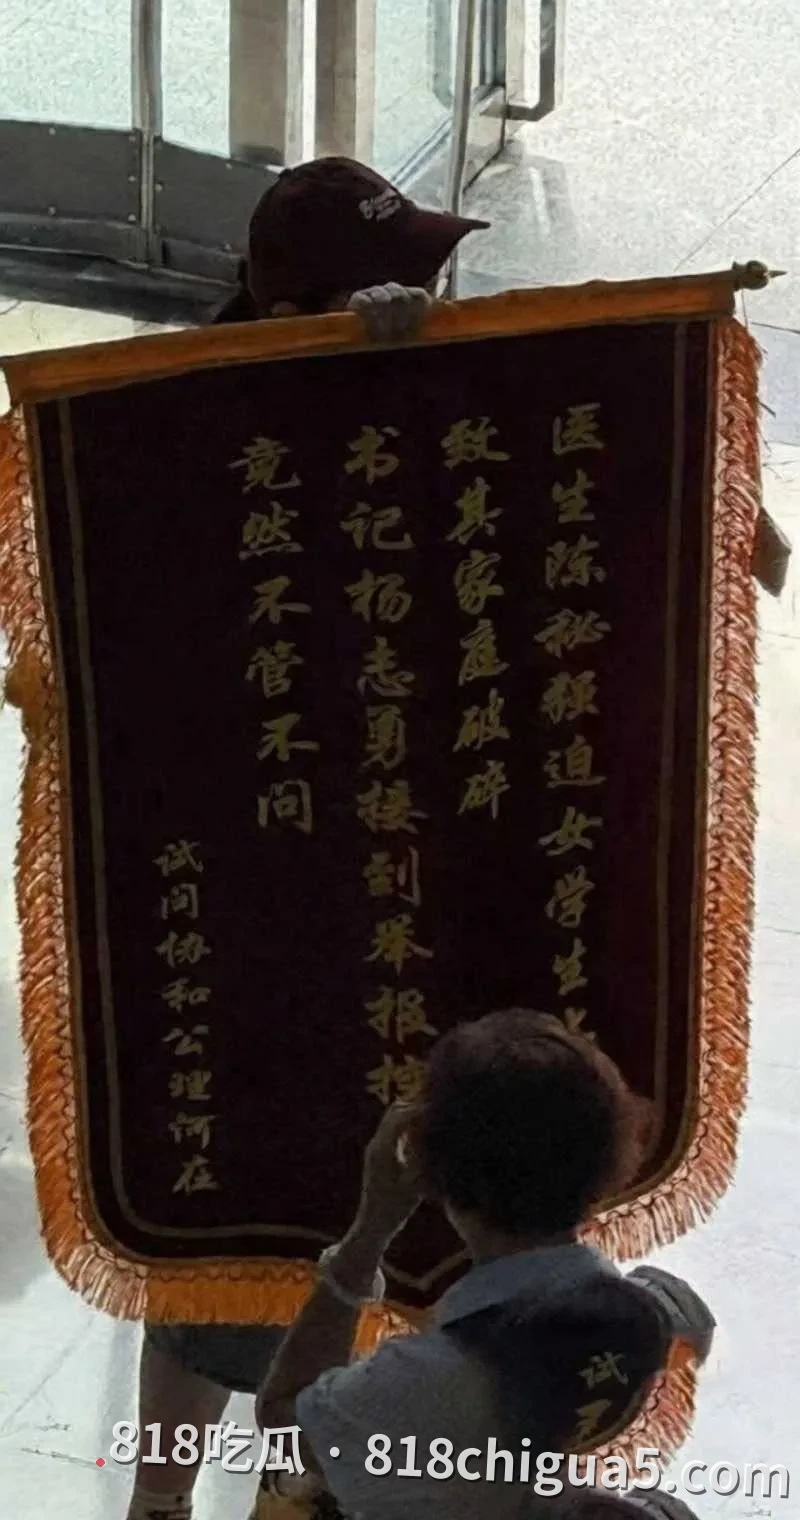 医生陈秘强迫女学生
致其家庭破碎
书记杨志勇接到举报
竟然不管不问
试问协和公理何在
试
818吃瓜·818chigua5.com